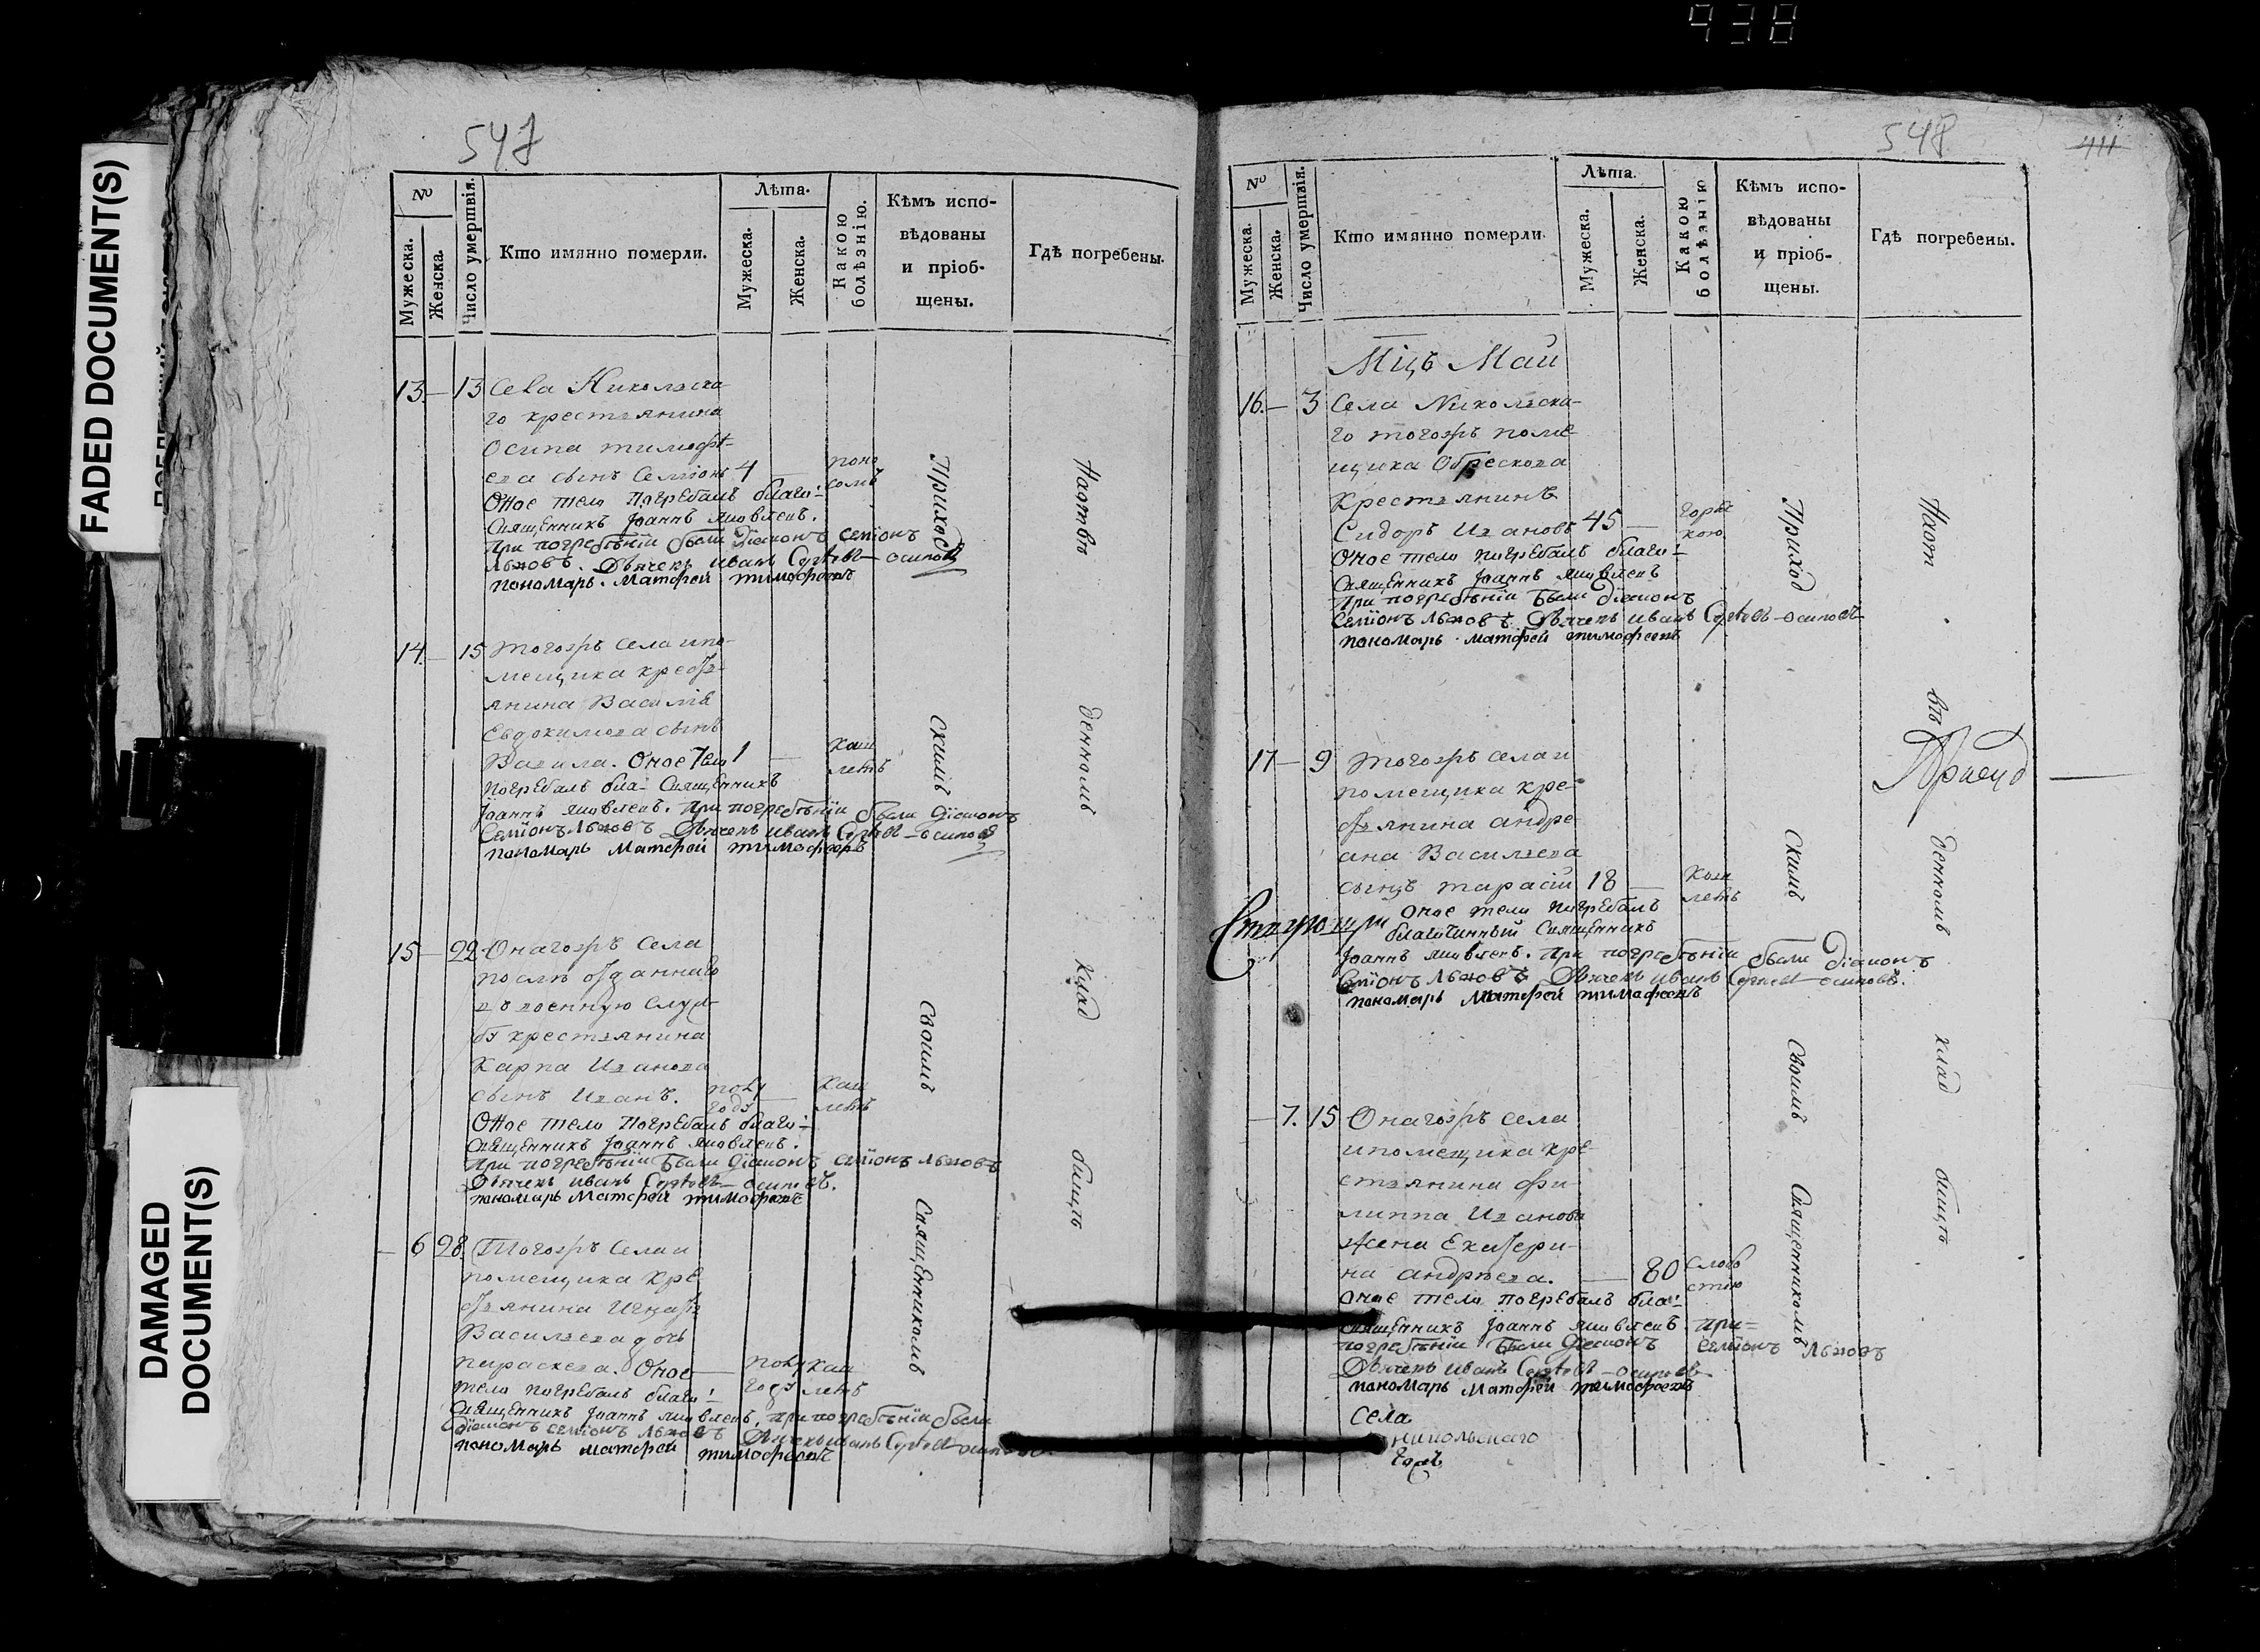 938
FADED DOCUMENT(S)
DAMAGED
DOCUMENT(S)
547
№
Мужеска.
Женска.
Число умертвія.
Кто имянно померли.
Лѣта.
Мужеска.
Женска.
Какою
болѣзнію.
Кѣмъ испо-
вѣдованы
и пріоб-
щены.
Гдѣ погребены.
13 — 13 Села Николска
го крестьянина
Осипа тимофѣ-
ева сынъ Семіонъ 4 — поно
сомъ
Оное тело погребалъ благо:
Священникъ Іоаннъ Яковлевъ.
При погребѣніи были Діаконъ Семіонъ
Львовъ. Дьячекъ иванъ Сергѣевъ осиповъ
пономарь. Матфей тимофеевъ
14 — 15 тогожъ Села и по-
мещика кресть-
янина Василія
Евдокимова сынъ
Вавила. Оное тело 1 — каш
лемъ
погребалъ бла: Священникъ
Іоаннъ Яковлевъ. При погребѣніи были Діаконъ
Семіонъ Львовъ Дьячекъ иванъ Сергѣевъ осиповъ
пономарь Матфей тимофеевъ
15 — 22 Онагожъ Села
послѣ отданнаго
въ военную служ-
бу крестьянина
Карпа Иванова
сынъ Иванъ. полу
году — каш
лемъ
Оное тело погребалъ благо:
Священникъ Іоаннъ Яковлевъ.
При погребѣніи были Діаконъ Семіонъ Львовъ
Дьячекъ иванъ Сергѣевъ осиповъ.
пономарь Матфей тимофеевъ
— 6 28 Тогожъ Села и
помещика кре
стьянина Игнатья
Васильева дочь
параскева. Оное — полу
году каш
лемъ
тело погребалъ благо:
Священникъ Іоаннъ Яковлевъ. при погребѣніи были
Діаконъ Семіонъ Львовъ Дьячекъ иванъ Сергѣевъ
пономарь Матфей тимофеевъ
Приход
скимъ
Своимъ
Священникомъ
На отвѣ
денномъ
клад
бищѣ
548
411
№
Мужеска.
Женска.
Число умертвія.
Кто имянно померли.
Лѣта.
Мужеска.
Женска.
Какою
болѣзнію
Кѣмъ испо-
вѣдованы
и пріоб-
щены.
Гдѣ погребены.
Мцъ Маи
16 — 3 Села Николска-
го тогожъ поме
щика Обрескова
Крестьянинъ
Сидоръ Ивановъ 45 — горяч
кою
Оное тело погребалъ благо:
Священникъ Іоаннъ Яковлевъ
При погребѣніи были Діаконъ
Семіонъ Львовъ. Дьячекъ иванъ Сергѣевъ осиповъ
пономарь матфей тимофеевъ
17 — 9 тогожъ села и
помещика кре-
стьянина андре
яна Васильева
сынъ тарасій 18 — каш
лемъ
Оное тело погребалъ
благочинный Священникъ
Іоаннъ Яковлевъ. При погребѣніи были Діаконъ
Семіонъ Львовъ Дьячекъ иванъ Сергѣевъ осиповъ.
пономарь Матфей тимофеевъ
— 7. 15 Онагожъ села
и помещика кре
стьянина фи
липпа Иванова
жена Екатери-
на андрѣева. — 80 слабо
стію
Оное тело погребалъ бла:
Священникъ Іоаннъ Яковлевъ. при-
погребѣніи были Діаконъ Семіонъ Львовъ
Дьячекъ иванъ Сергѣевъ осиповъ
пономарь Матфей тимофеевъ
села
никольскаго
Приход
скимъ
Своимъ
Священникомъ
На от
вѣ
денномъ
клад
бищѣ